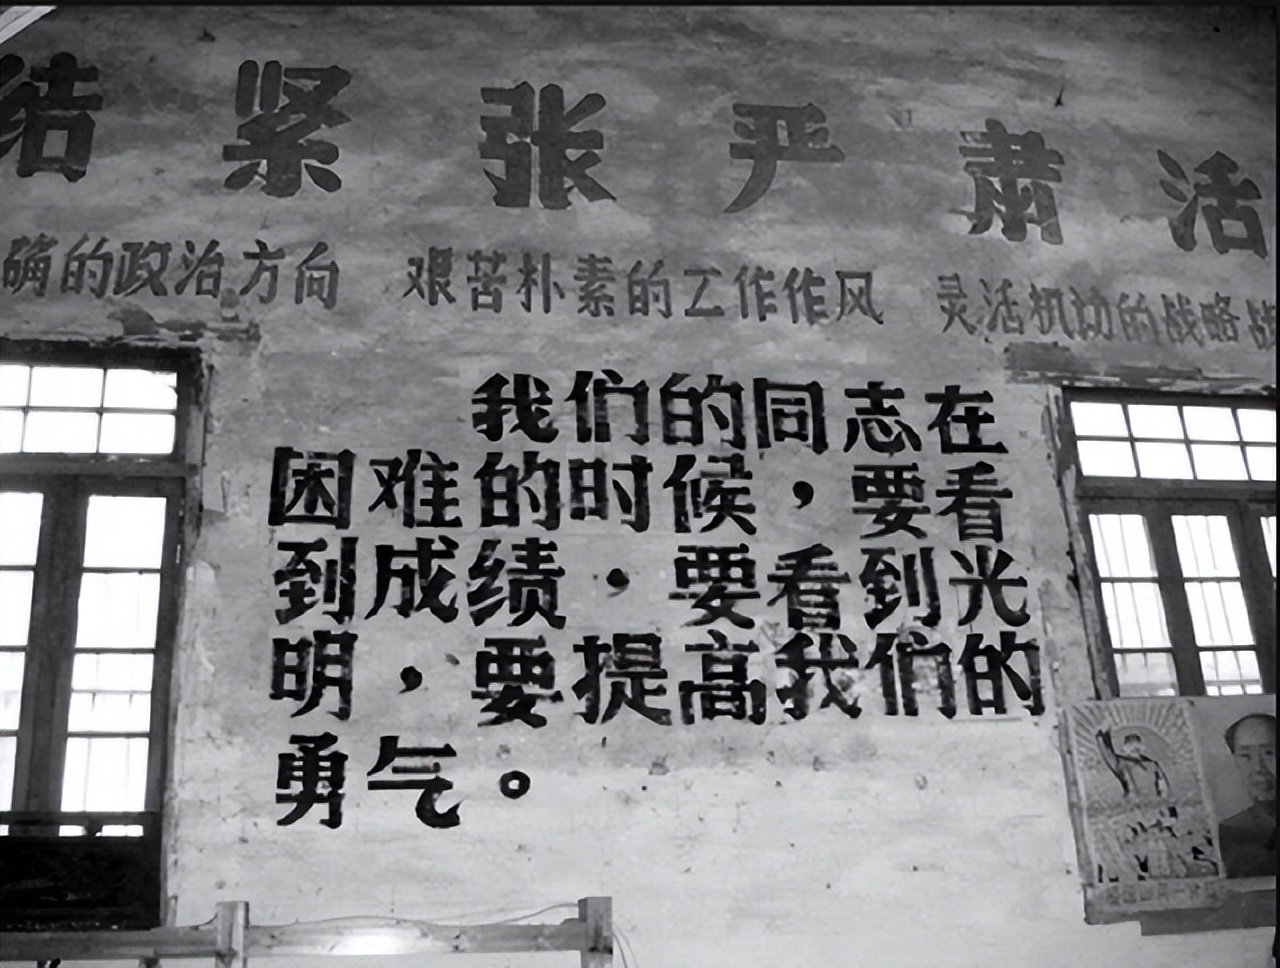 结紧张严肃活
确的政治方向 艰苦朴素的工作作风 灵活机动的战略战
我们的同志在
困难的时候，要看
到成绩，要看到光
明，要提高我们的
勇气。